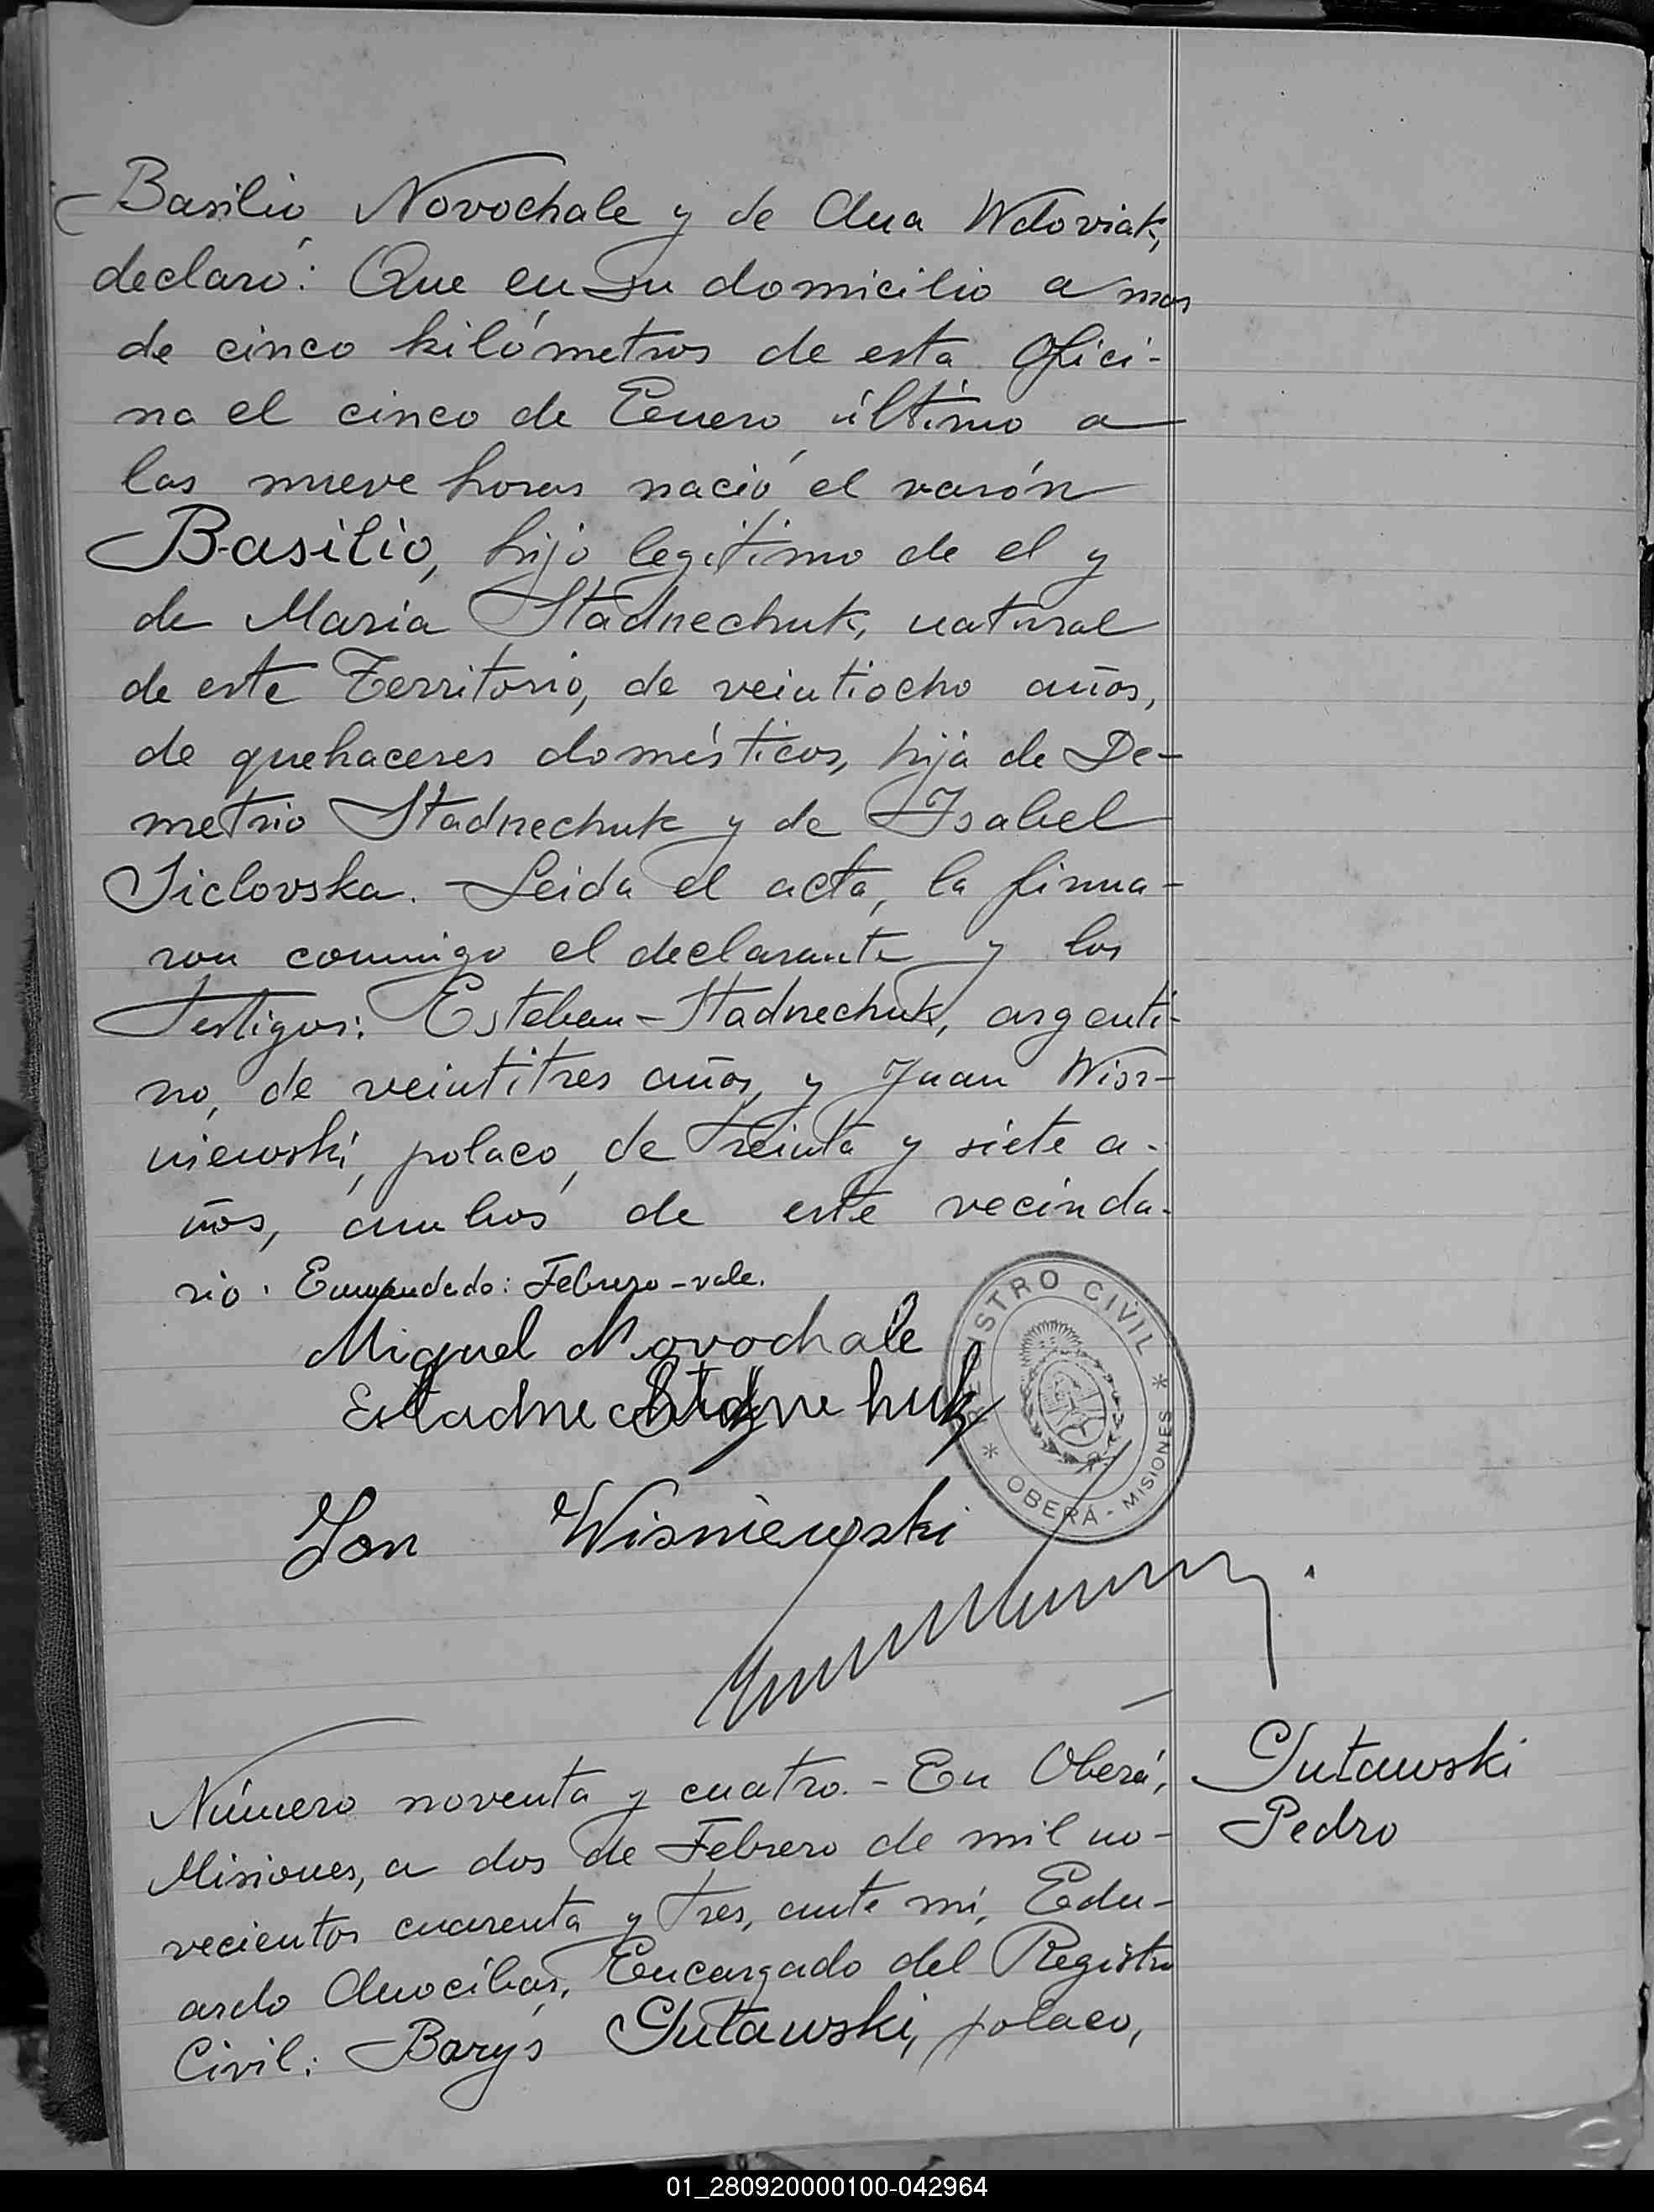 Basilio Novochale y de Ana Wdoviak,
declaró: Que en su domicilio a mas
de cinco kilómetros de esta Ofici-
na el cinco de Enero último a
las nueve horas nació el varón
Basilio, hijo legítimo de el y
de Maria Stadnechuk, natural
de este Territorio, de veintiocho años,
de quehaceres domésticos, hija de De-
metrio Stadnechuk y de Isabel
Siclovska. Leida el acta, la firma-
ron conmigo el declarante y los
testigos: Esteban Stadnechuk, argenti-
no, de veintitres años, y Juan Wisz-
niewski, polaco, de treinta y siete a-
ños, ambos de este vecinda-
rio. Enmendado: Febrero - vale.
Miguel Novochale
Jan Wisniewski
REGISTRO CIVIL
* OBERÁ - MISIONES *
Número noventa y cuatro. - En Oberá,
Misiones, a dos de Febrero de mil no-
vecientos cuarenta y tres, ante mi, Edu-
ardo Anocíbar, Encargado del Registro
Civil: Borys Gutawski, polaco,
Gutawski
Pedro
01_280920000100-042964